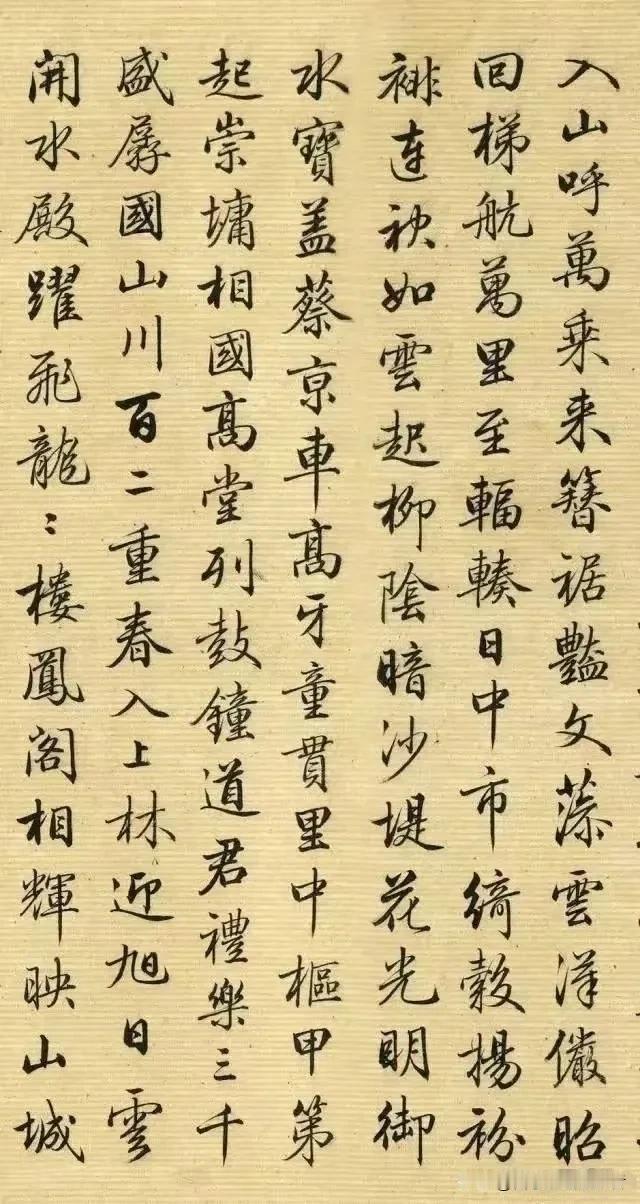 入山呼萬乘来簪裾豔文藻雲漢儼昭
回梯航萬里至輻輳日中市綺縠揚衯
裶連袂如雲起柳陰暗沙堤花光明御
水寶蓋蔡京車髙牙童貫里中樞甲第
起崇墉相國髙堂列鼓鐘道君禮樂三千
盛孱國山川百二重春入上林迎旭日雲
開水殿躍飛龍〻樓鳳閣相輝映山城